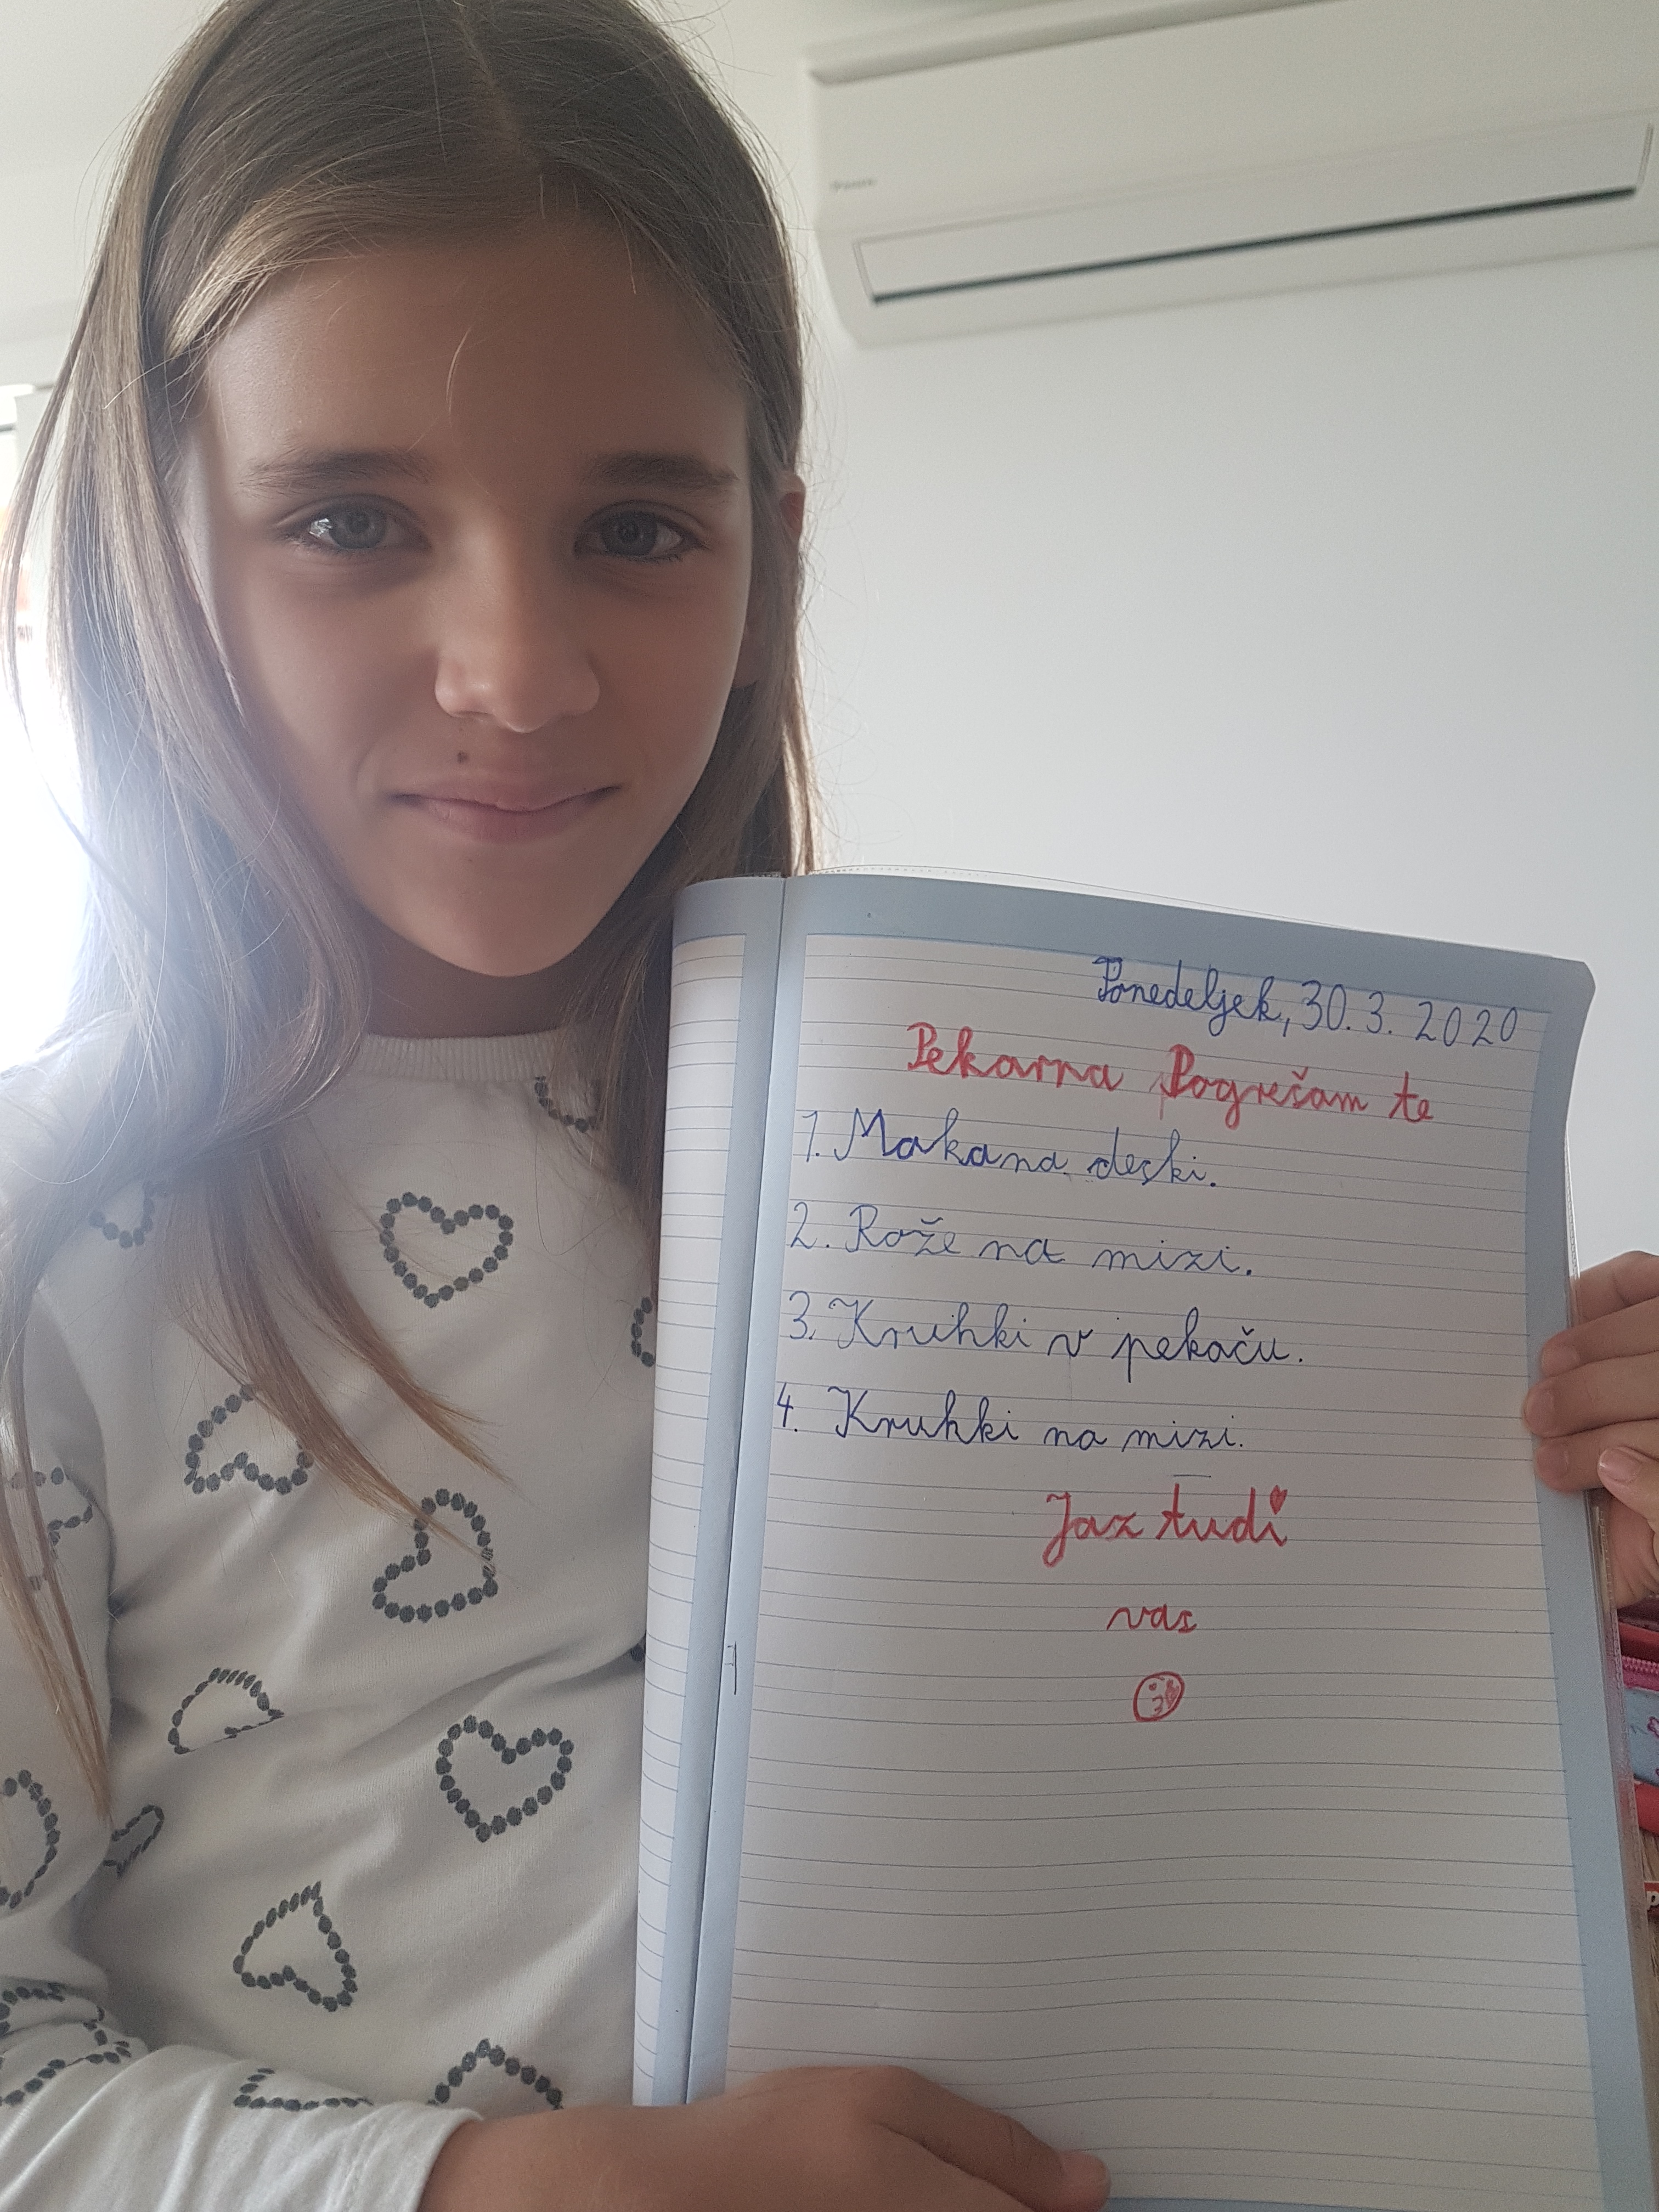 Ponedeljek, 30. 3. 2020
Pekarna Pogrešam te
1. Moka na deski.
2. Rože na mizi.
3. Kruhki v pekaču.
4. Kruhki na mizi.
Jaz tudi
vas